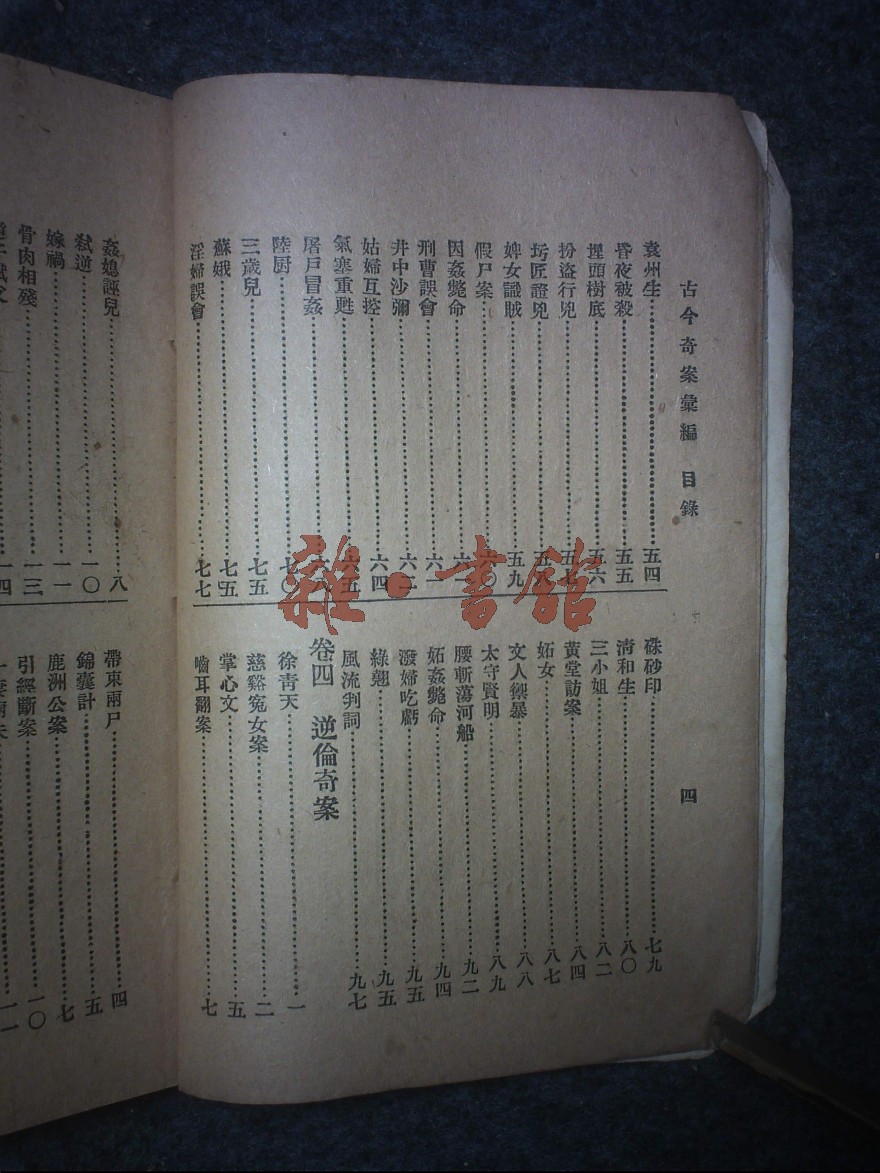 古今奇案彙編 目錄 四
袁州生 五四
昏夜被殺 五五
埋頭樹底 五六
扮盜行兇 五七
圬匠證兇
婢女譏賊 五九
假尸案
因姦斃命
刑曹誤會 六一
井中沙彌 六二
姑婦互控 六四
氣塞重甦 六五
屠戶冒姦
陸厨 七〇
三歲兒 七五
蘇娥 七五
淫婦誤會 七七
硃砂印 七九
清和生 八〇
三小姐 八二
黃堂訪案 八四
妬女 八七
文人禦暴 八八
太守賢明 八九
腰斬蕩河船 九二
妬姦斃命 九四
潑婦吃虧 九五
綠翹 九五
風流判詞 九七
卷四 逆倫奇案
徐青天 一
慈谿冤女案 二
掌心文 五
嚙耳翻案 七
姦媳誣兒 八
弒逆 一〇
嫁禍 一一
骨肉相殘 一三
一四
帶來兩尸 四
錦囊計 五
鹿洲公案 七
引經斷案 一〇
一一
雜·書館